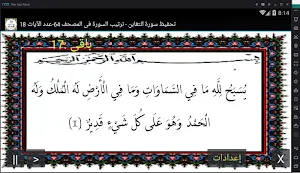 8:14
تحفيظ سورة التغابن - ترتيب السورة في المصحف 64-عدد الآيات 18
باقي 17
بسم الله الرحمن الرحيم
يُسَبِّحُ لِلَّهِ مَا فِي السَّمَاوَاتِ وَمَا فِي الْأَرْضِ لَهُ الْمُلْكُ وَلَهُ
الْحَمْدُ وَهُوَ عَلَى كُلِّ شَيْءٍ قَدِيرٌ (١)
إعدادات
X